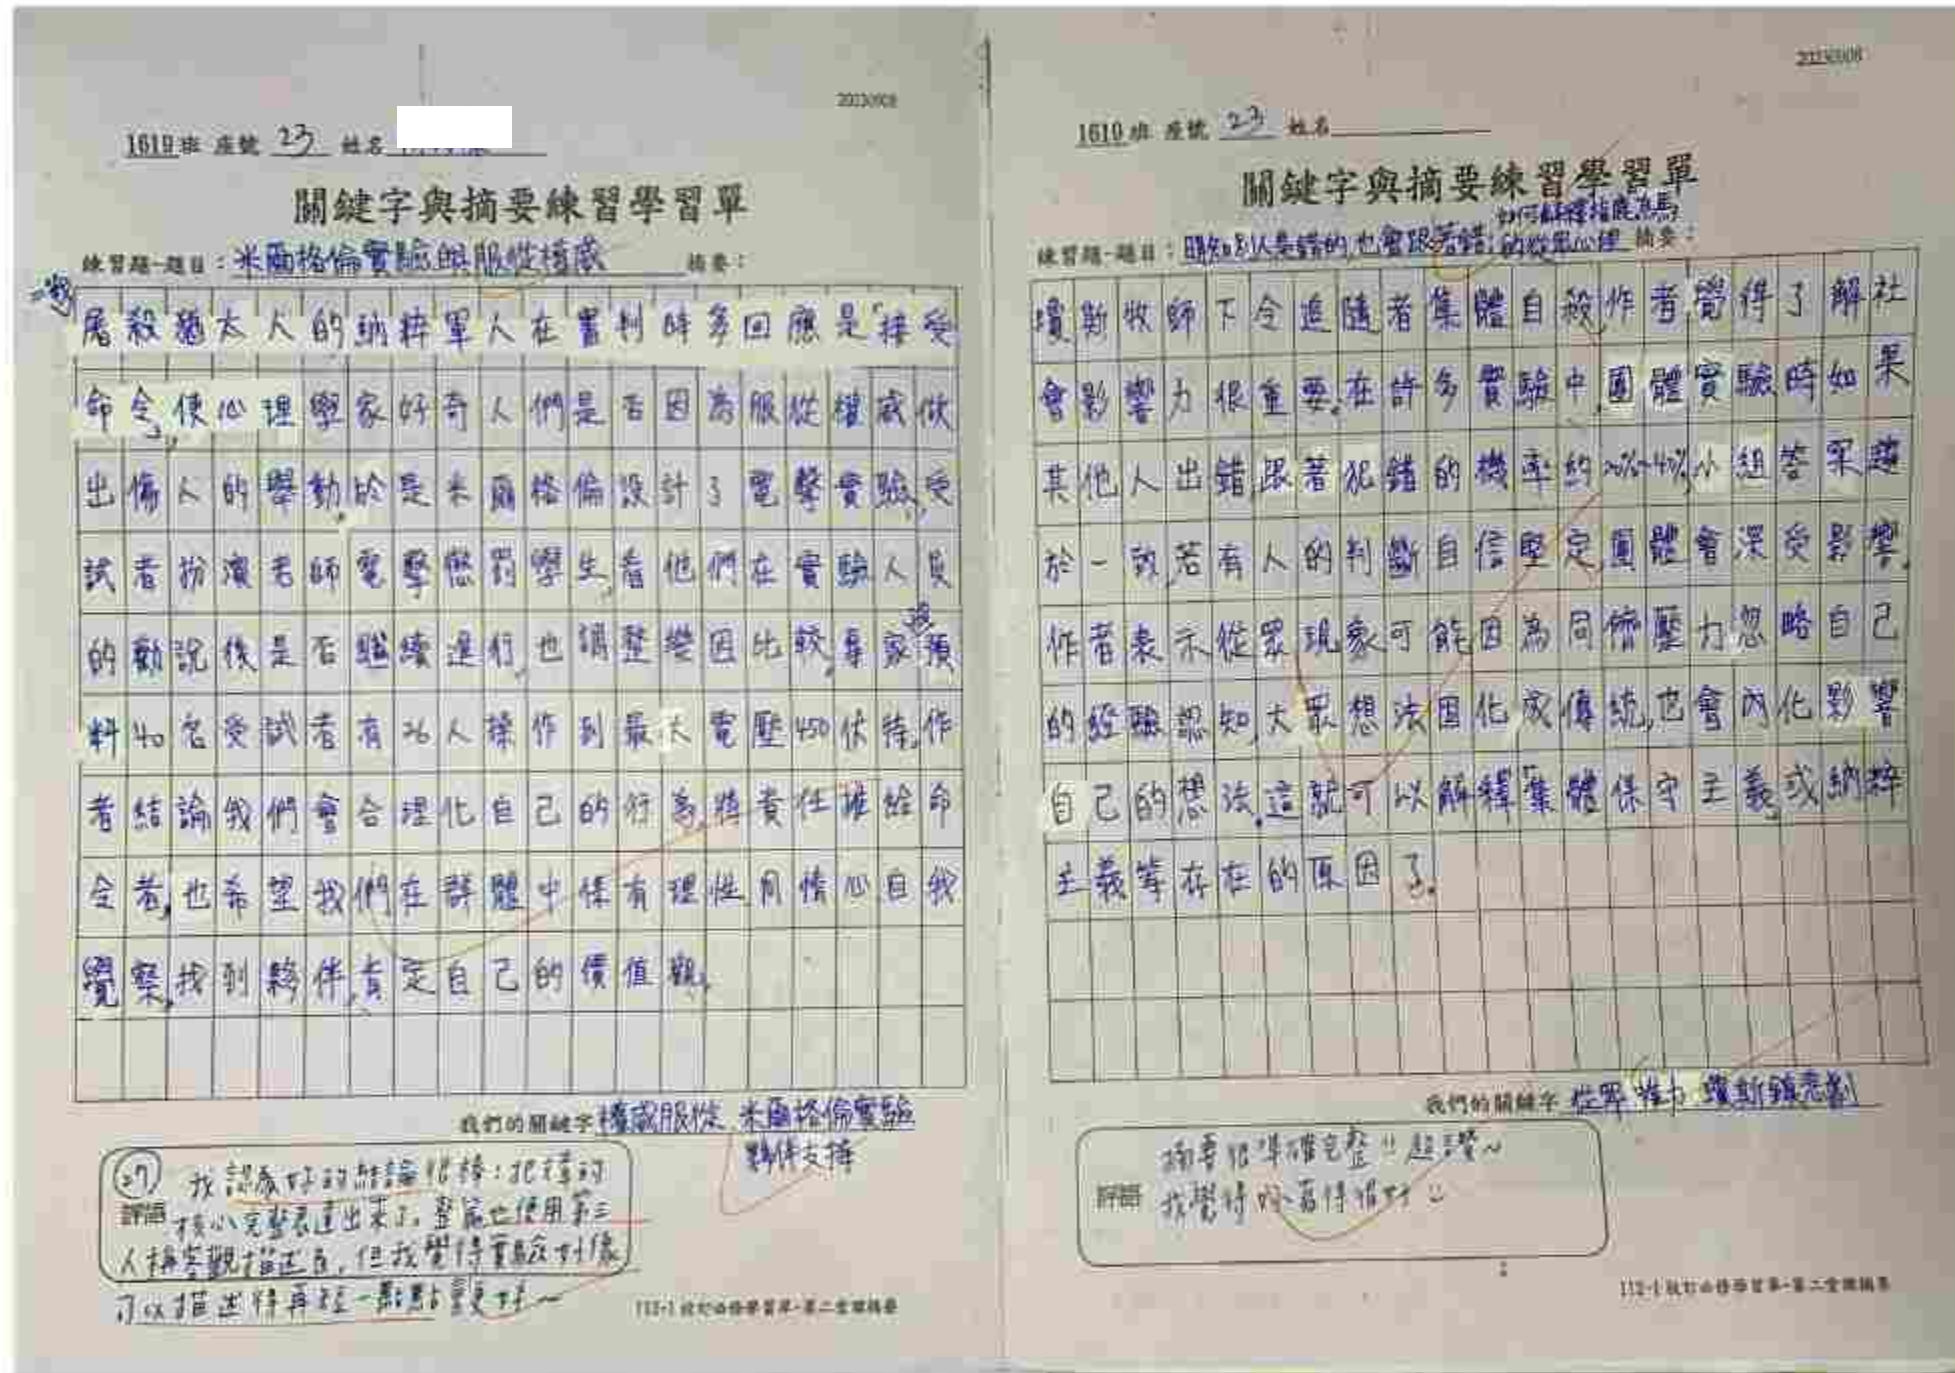 20230908
1619班 座號 23 姓名
關鍵字與摘要練習學習單
練習題-題目：米爾格倫實驗與服從權威 摘要：
屠殺猶太人的納粹軍人在審判時多回應是「接受
命令」,使心理學家好奇人們是否因為服從權威做
出傷人的舉動。於是米爾格倫設計了電擊實驗,受
試者扮演老師電擊懲罰學生,看他們在實驗人員
的勸說後是否繼續進行,也調整變因比較。專家預
料40名受試者有26人操作到最大電壓450伏特,作
者結論我們會合理化自己的行為,將責任推給命
令者,也希望我們在群體中保有理性同情心自我
覺察,找到夥伴,肯定自己的價值觀。
我們的關鍵字 權威服從 米爾格倫實驗
夥伴支持
27
評語
我認為妳的結論很棒：把文章的
核心完整表達出來了，整篇也使用第三
人稱客觀描述，但我覺得實驗好像
可以描述得再短一點點會更好～
112-1校訂必修學習單-第二堂課摘要
20230908
1619班 座號 23 姓名
關鍵字與摘要練習學習單
如何解釋指鹿為馬
練習題-題目：明知別人是錯的,也會跟著錯: 的從眾心理 摘要：
瓊斯牧師下令追隨者集體自殺,作者覺得了解社
會影響力很重要。在許多實驗中,團體實驗時如果
其他人出錯,跟著犯錯的機率約20%~40%,小組答案趨
於一致,若有人的判斷自信堅定,團體會深受影響。
作者表示從眾現象可能因為同儕壓力忽略自己
的經驗認知,大眾想法因化成傳統,也會內化影響
自己的想法。這就可以解釋「集體保守主義」或納粹
主義等存在的原因了。
我們的關鍵字 從眾 權力 瓊斯鎮悲劇
評語
摘要很準確完整!! 超讚～
我覺得妳寫得很好
112-1校訂必修學習單-第二堂課摘要